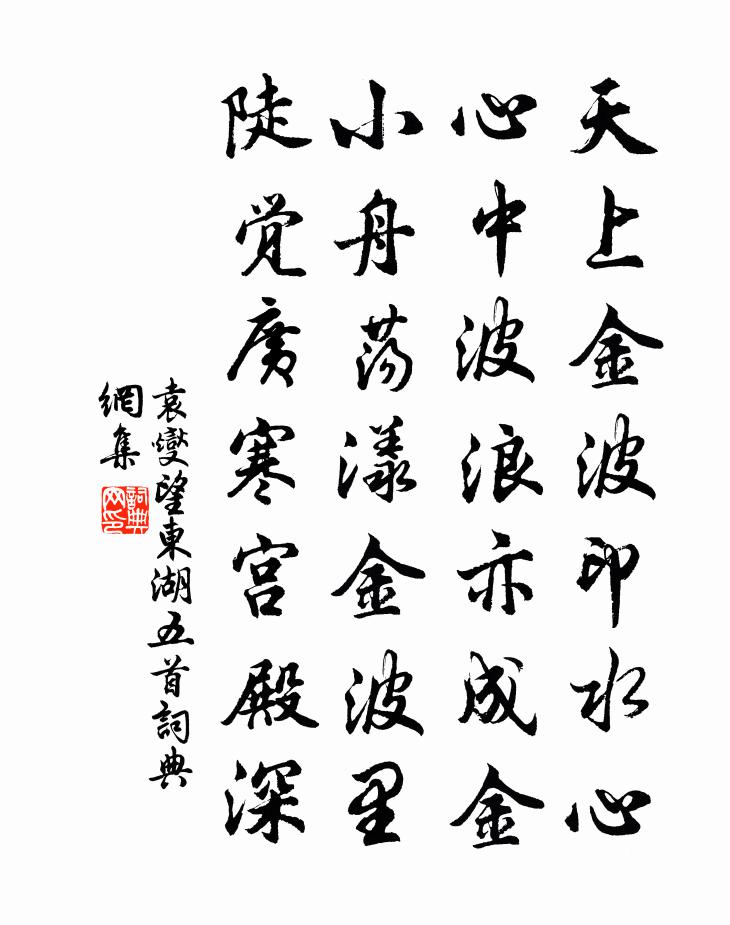 天上金波印水心
心中波浪亦成金
小舟荡漾金波里
陡觉廣寒宫殿深
袁燮望東湖五首詞典
網集
詞典
网印